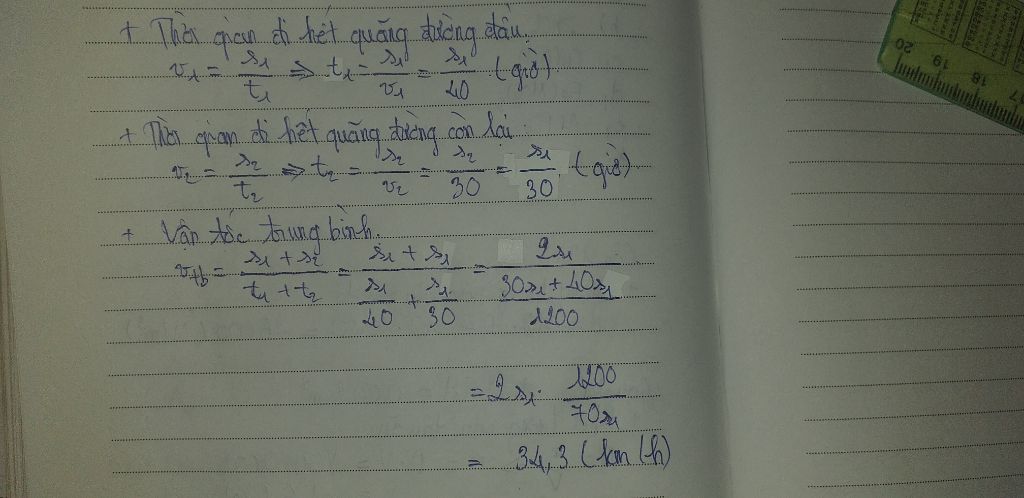 + Thời gian đi hết quãng đường đầu.
v₁ = s₁/t₁ ⇒ t₁ = s₁/v₁ = s₁/40 (giờ)
+ Thời gian đi hết quãng đường còn lại
v₂ = s₂/t₂ ⇒ t₂ = s₂/v₂ = s₂/30 = s₁/30 (giờ)
+ Vận tốc trung bình.
vtb = (s₁ + s₂)/(t₁ + t₂) = (s₁ + s₁)/(s₁/40 + s₁/30) = 2s₁/((30s₁ + 40s₁)/1200)
= 2s₁ . 1200/70s₁
= 34,3 (km/h)
20 19 18 17